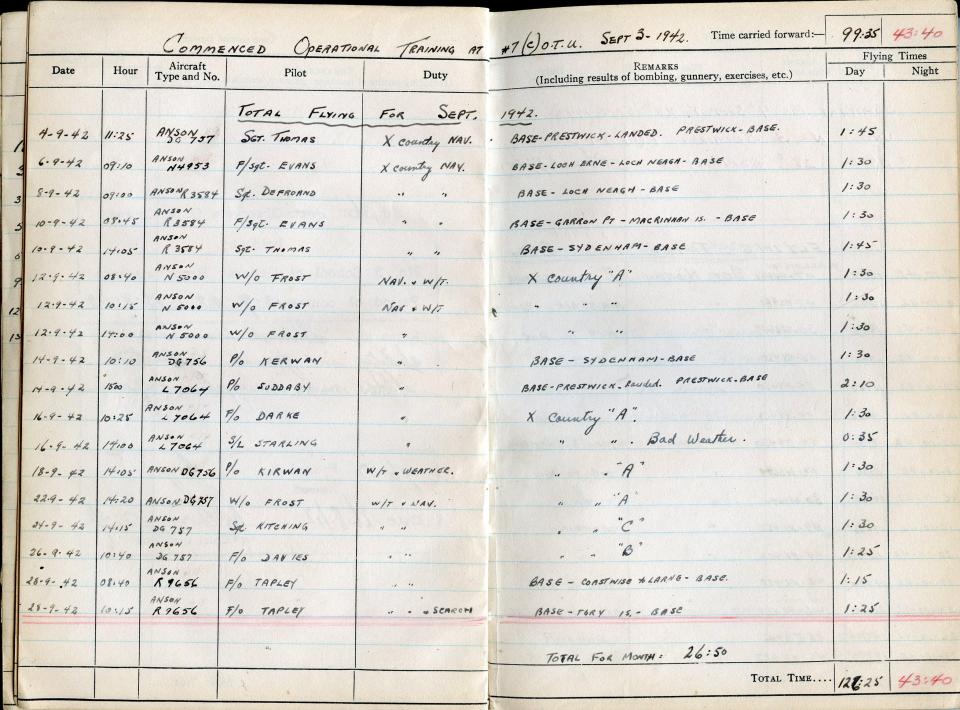 COMMENCED OPERATIONAL TRAINING AT #7 (C) O.T.U. SEPT 3-1942. Time carried forward:— 99:35 43:40
Date Hour Aircraft Type and No. Pilot Duty REMARKS (Including results of bombing, gunnery, exercises, etc.) Flying Times Day Night
TOTAL FLYING FOR SEPT. 1942.
4-9-42 11:25 ANSON DG 757 SGT. THOMAS X country NAV. BASE-PRESTWICK-LANDED. PRESTWICK-BASE. 1:45
6-9-42 09:10 ANSON N4953 F/Sgt. EVANS X country NAV. BASE-LOCH ERNE-LOCH NEAGH-BASE 1:30
8-9-42 09:00 ANSON R3584 Sgt. DEFROAND " " BASE-LOCH NEAGH-BASE 1:30
10-9-42 08:45 ANSON R3584 F/Sgt. EVANS " " BASE-GARRON PT-MACRINAAN IS.-BASE 1:30
10-9-42 14:05 ANSON R3584 Sgt. THOMAS " " BASE-SYDENHAM-BASE 1:45
12-9-42 08:40 ANSON N5000 W/O FROST NAV. & W/T. X country "A" 1:30
12-9-42 10:15 ANSON N5000 W/O FROST NAV & W/T " " " 1:30
12-9-42 14:00 ANSON N5000 W/O FROST " " " " 1:30
14-9-42 10:10 ANSON DG756 P/O KERWAN " BASE-SYDENHAM-BASE 1:30
14-9-42 1500 ANSON L7064 P/O SUDDABY " BASE-PRESTWICK-Landed. PRESTWICK-BASE 2:10
16-9-42 10:25 ANSON L7064 F/O DARKE " X Country "A". 1:30
16-9-42 14:00 ANSON L7064 S/L STARLING " " " . Bad Weather. 0:35
18-9-42 14:05 ANSON DG756 P/O KIRWAN W/T & WEATHER. " " "A" 1:30
22-9-42 14:20 ANSON DG757 W/O FROST W/T & NAV. " " "A" 1:30
24-9-42 14:15 ANSON DG 757 Sgt. KITCHING " " " " "C" 1:30
26-9-42 10:40 ANSON DG 757 F/O DAVIES " " " " "B" 1:25
28-9-42 08:40 ANSON R9656 F/O TAPLEY " " BASE-COASTWISE to LARNE-BASE. 1:15
28-9-42 10:15 ANSON R9656 F/O TAPLEY " " & SEARCH BASE-TORY IS.-BASE 1:25
TOTAL FOR MONTH: 26:50
TOTAL TIME.... 126:25 43:40